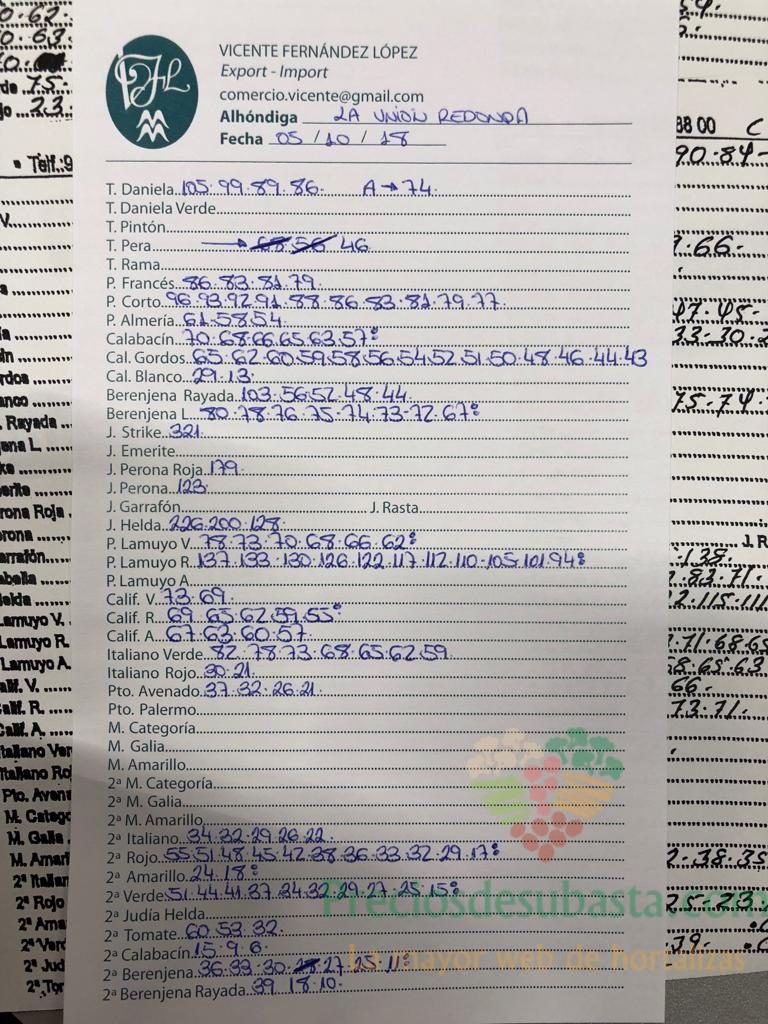 VFL
VICENTE FERNÁNDEZ LÓPEZ
Export - Import
comercio.vicente@gmail.com
Alhóndiga LA UNION REDONDA
Fecha 05 / 10 / 18
T. Daniela 105.99.89.86. A→74.
T. Daniela Verde
T. Pintón
T. Pera → 68.56 46
T. Rama
P. Francés 86.83.81.79.
P. Corto 96.93.92.91.88.86.83.81.79.77.
P. Almería 61.58.54.
Calabacín 70.68.66.65.63.57:
Cal. Gordos 65.62.60.59.58.56.54.52.51.50.48.46.44.43
Cal. Blanco 29.13.
Berenjena Rayada 103.56.52.48.44.
Berenjena L. 80.78.76.75.74.73.72.67:
J. Strike 321.
J. Emerite
J. Perona Roja 179.
J. Perona 123.
J. Garrafón J. Rasta
J. Helda 226.200.128.
P. Lamuyo V. 78.73.70.68.66.62:
P. Lamuyo R. 137.133.130.126.122.117.112.110.105.101.94:
P. Lamuyo A
Calif. V. 73.69.
Calif. R. 69.65.62.59.55:
Calif. A. 67.63.60.57.
Italiano Verde 82.78.73.68.65.62.59.
Italiano Rojo 30.21.
Pto. Avenado 37.32.26.21.
Pto. Palermo
M. Categoría
M. Galia
M. Amarillo
2ª M. Categoría
2ª M. Galia
2ª M. Amarillo
2ª Italiano 34.32.29.26.22.
2ª Rojo 55.51.48.45.42.38.36.33.32.29.17:
2ª Amarillo 24.18:
2ª Verde 51.44.41.37.34.32.29.27.25.15:
2ª Judía Helda
2ª Tomate 60.53.32.
2ª Calabacín 15.9.6.
2ª Berenjena 36.33.30.28.27.25.11:
2ª Berenjena Rayada 39.18.10.
Preciosdesubasta.com
La mayor web de hortalizas